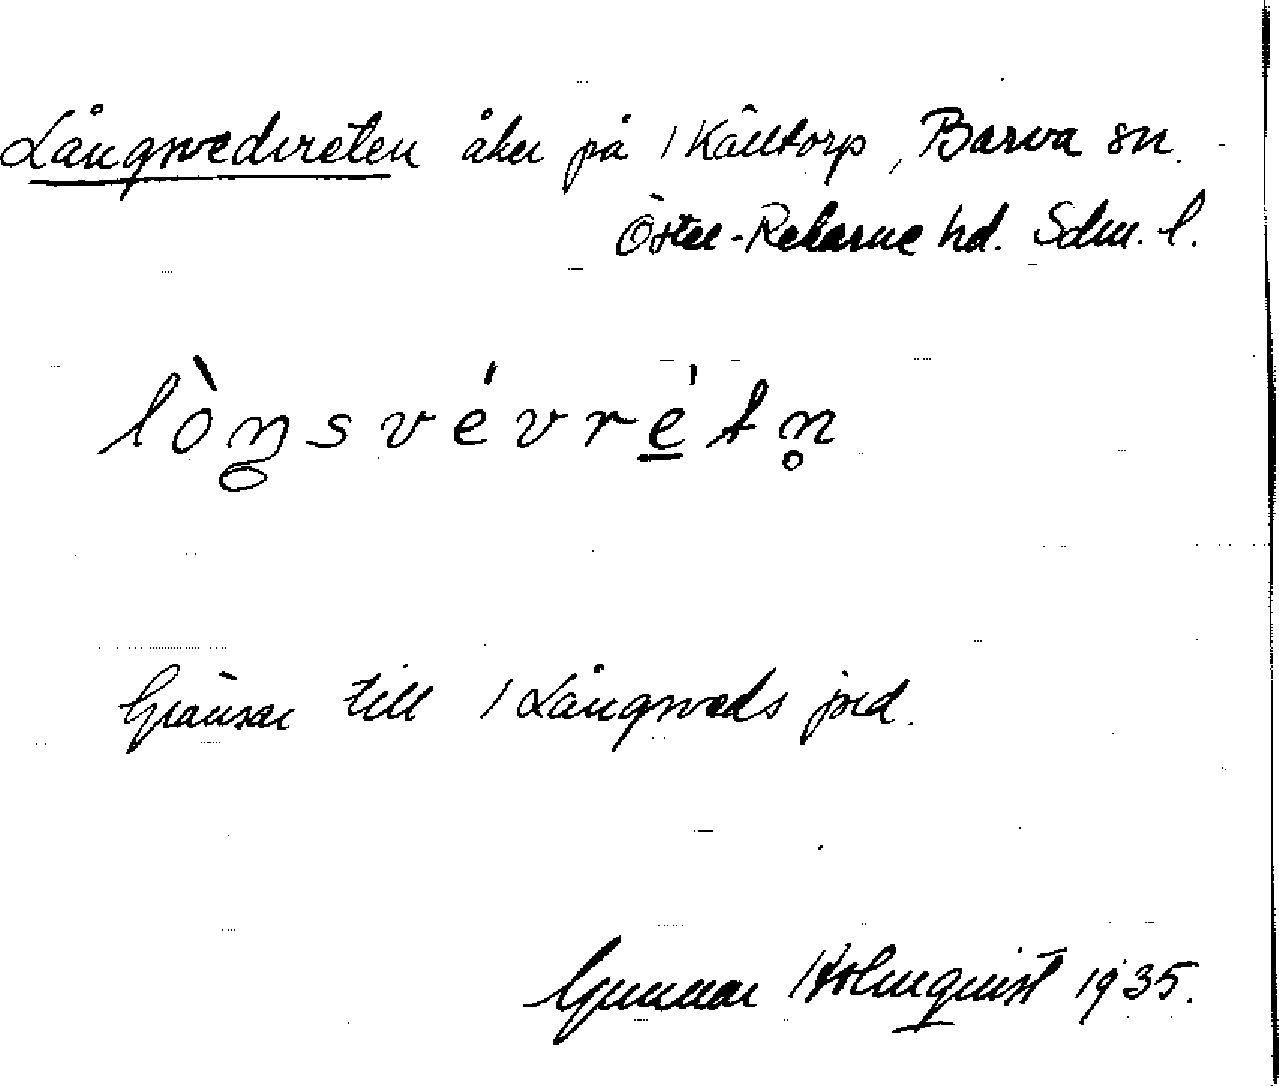 Långsvedvreten åker på / Källtorp, Barva sn.
Öster-Rekarne hd. Sdm. l.
lòŋsvévrètn̥
Gränsar till / Långsveds jord.
Gunnar Holmquist 1935.